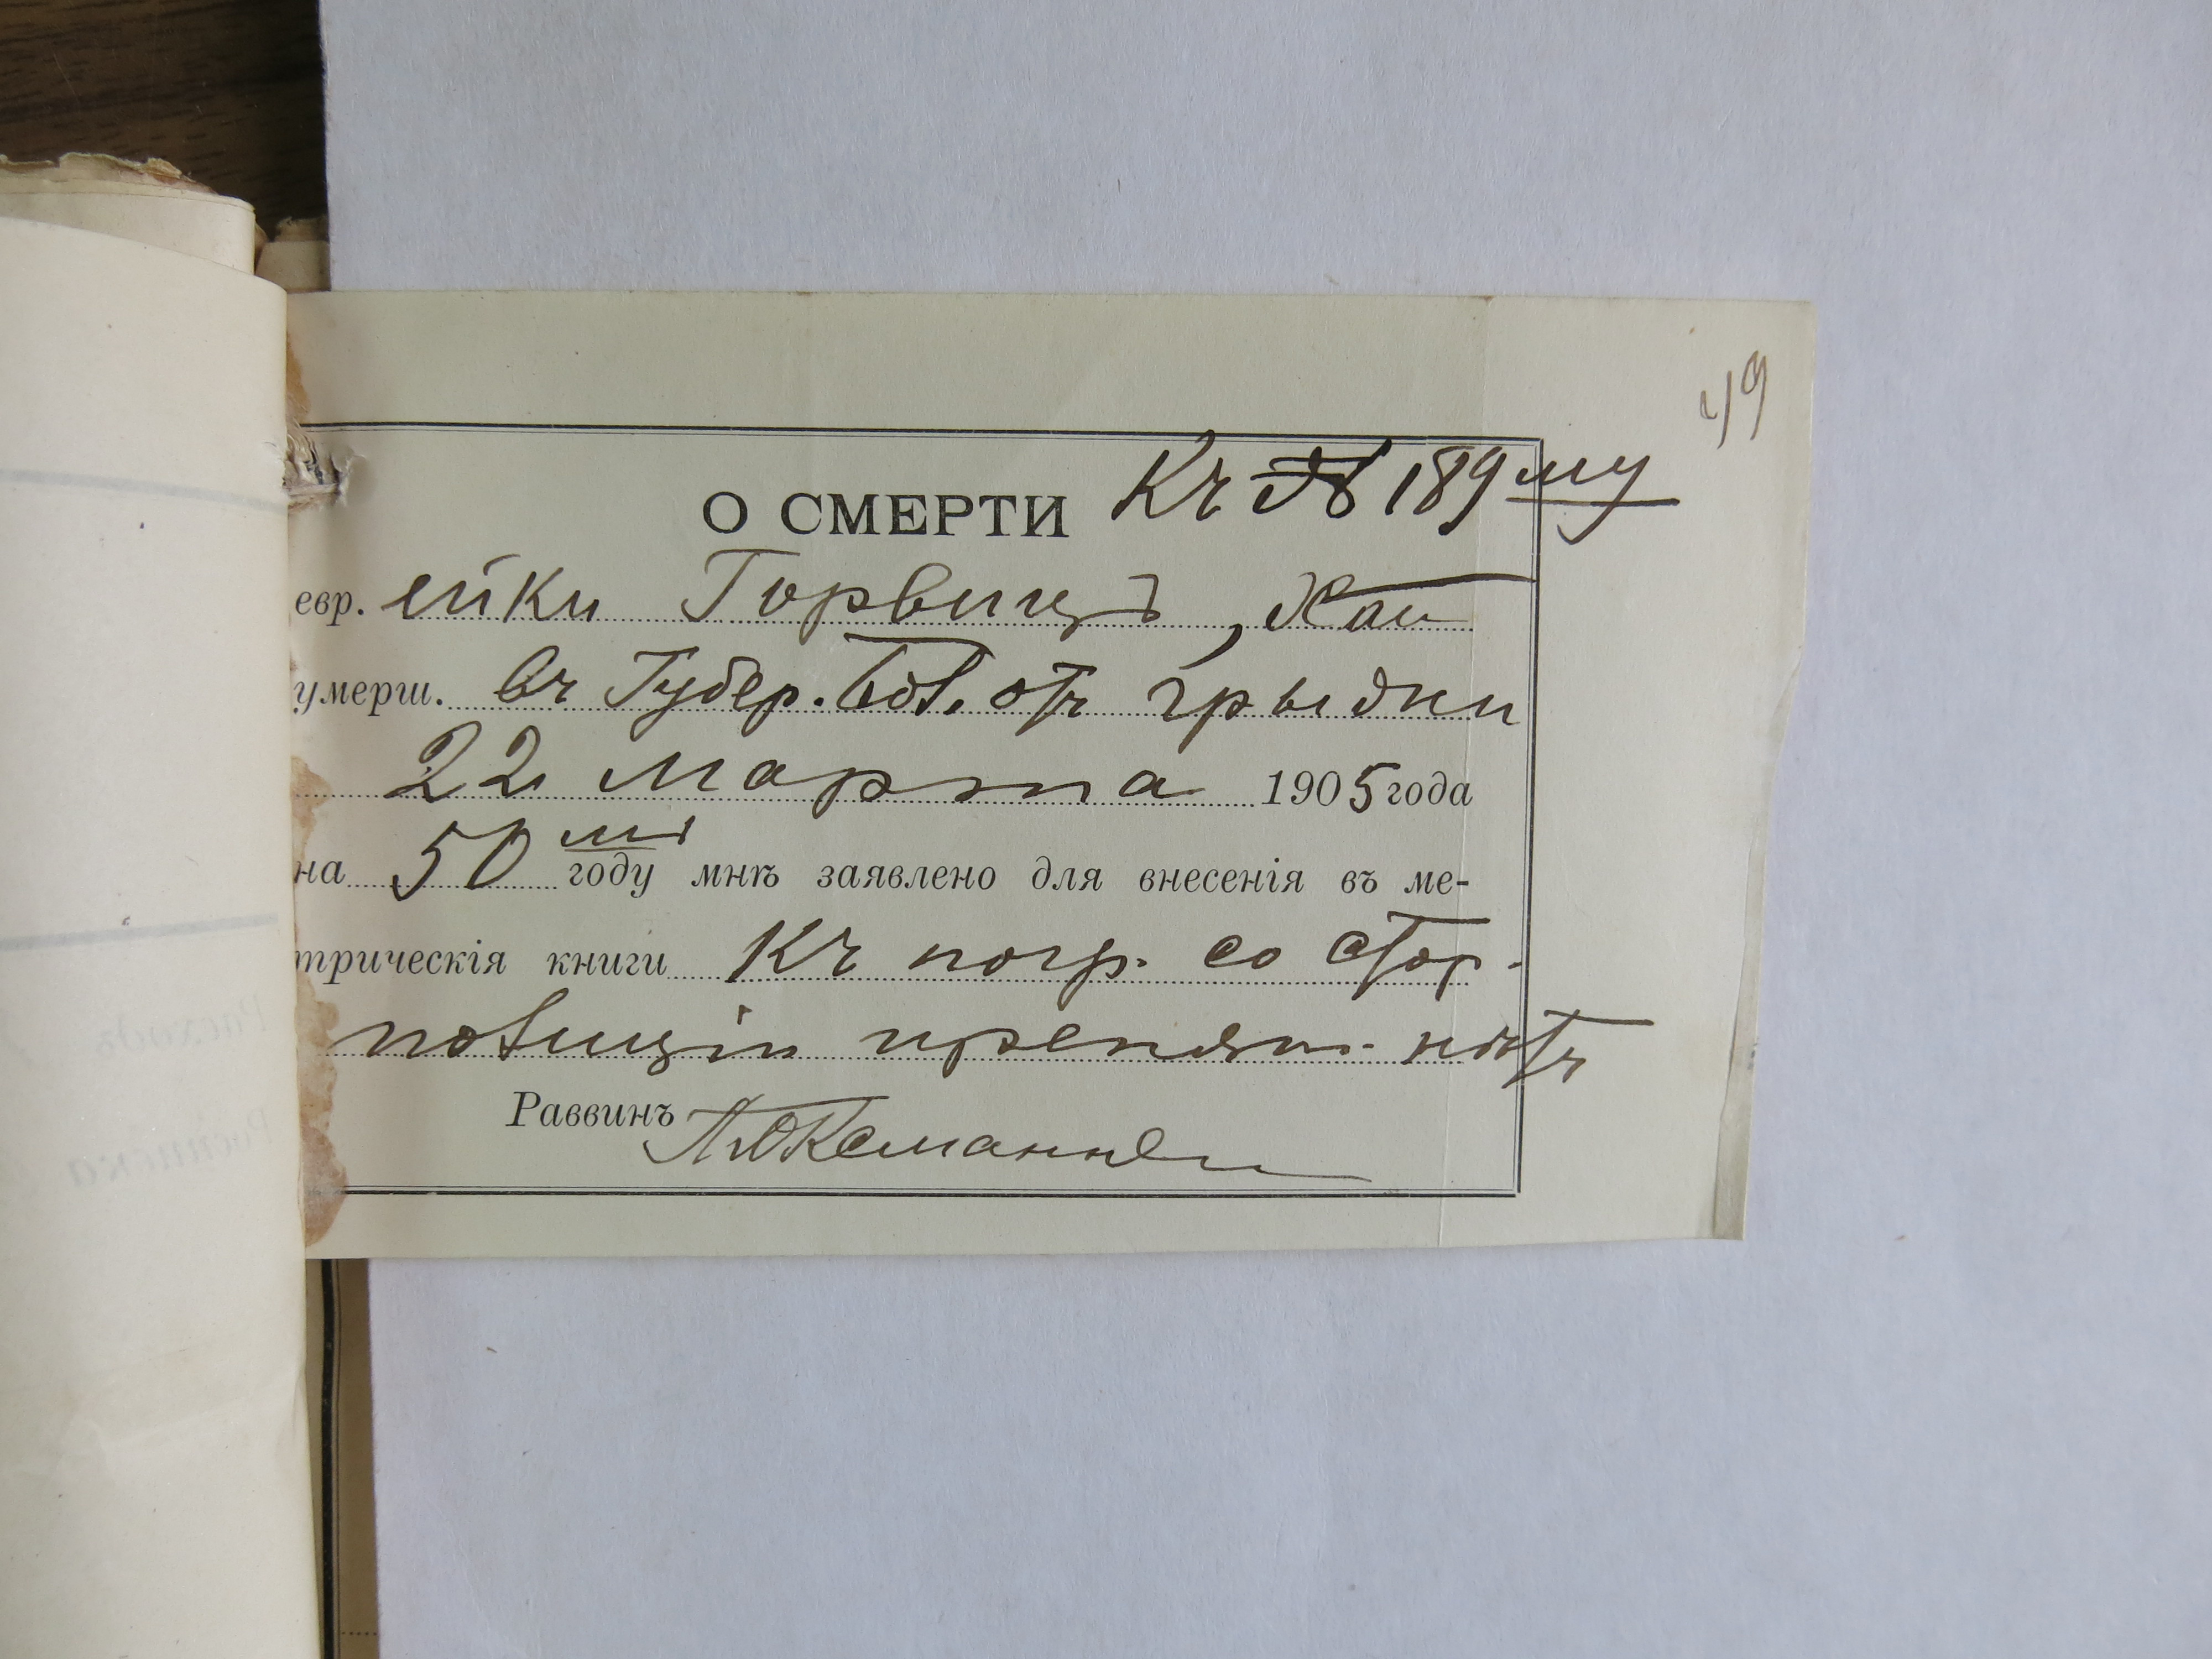 49
О СМЕРТИ Къ № 189 му
евр. ейки Горвицъ, Хаи
умерш. въ Губер. Бол. отъ грыжи
22 марта 1905 года
на 50 мъ году мнѣ заявлено для внесенія въ ме-
трическія книги Къ погр. со стор.
полиціи препят. нѣтъ
Раввинъ